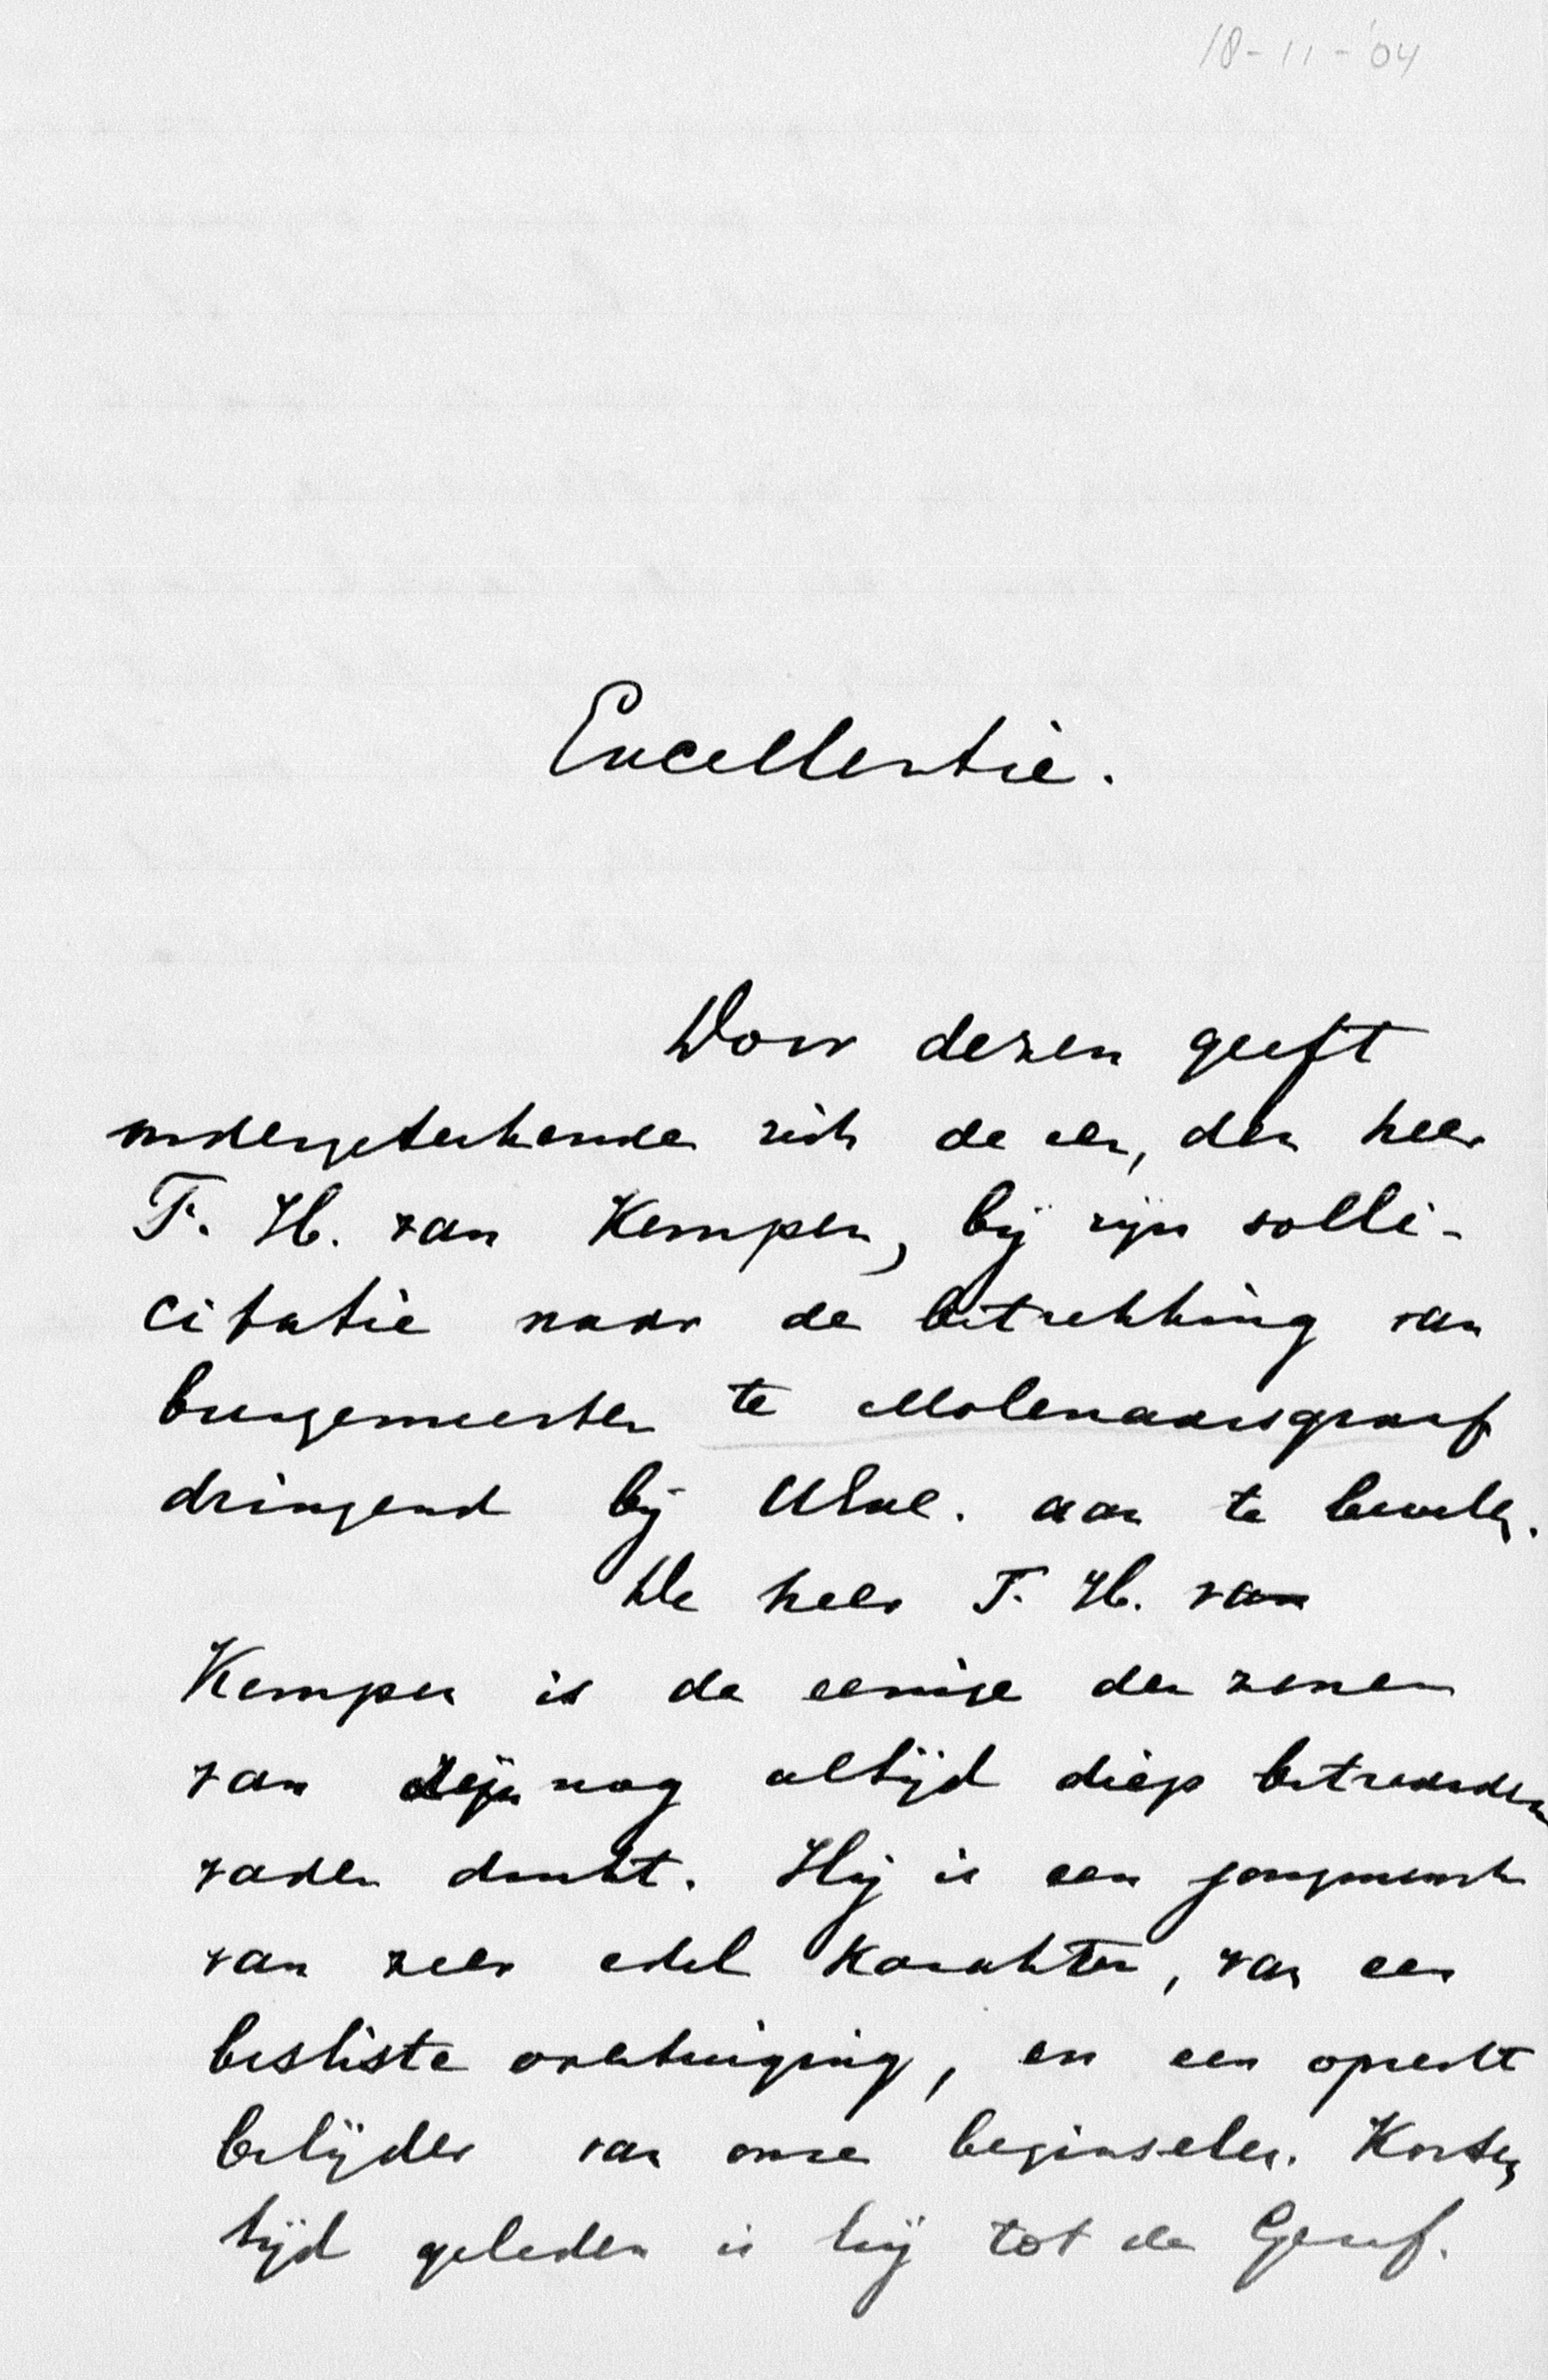 18-11-'04
Excellentie.
Door dezen geeft
ondergeteekende zich de eer, den heer
F. H. van Kempen, bij zijn solli-
citatie naar de betrekking van
burgemeester te Molenaarsgraaf
dringend bij UExc. aan te bevelen.
De heer F. H. van
Kempen is de eenige der zonen
van zijn nog altijd diep betreurden
vader drukt. Hij is een jongmensch
van zeer edel karakter, van een
besliste overtuiging, en een oprecht
belijder van onze beginselen. Korten
tijd geleden is hij tot de Geref.